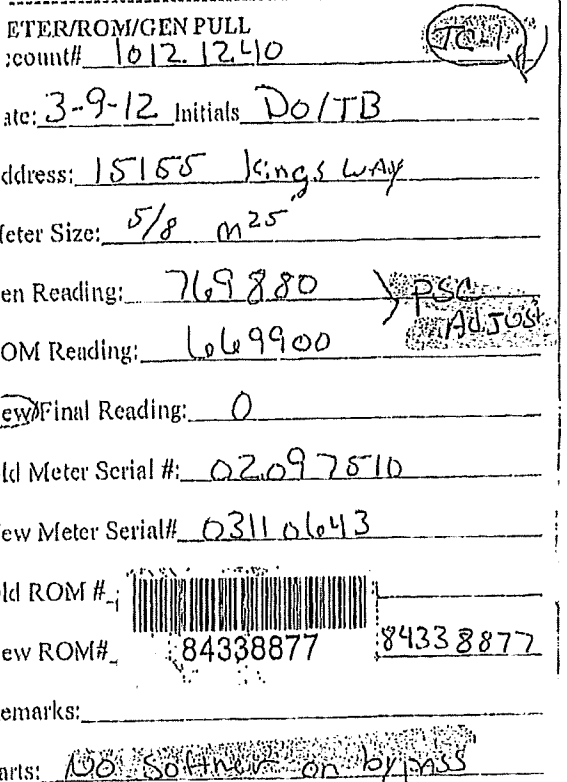 ETER/ROM/GEN PULL
TC-1
:count# 1012.1240
ate: 3-9-12 Initials DO/TB
ddress: 15155 Kings WAy
Meter Size: 5/8 m25
en Reading: 769880 PSC
AdJUSt
OM Reading: 669900
ew/Final Reading: 0
ld Meter Serial #: 02097510
ew Meter Serial# 03110643
ld ROM #
ew ROM# 84338877 84338877
emarks:
arts: No Softner on bypass